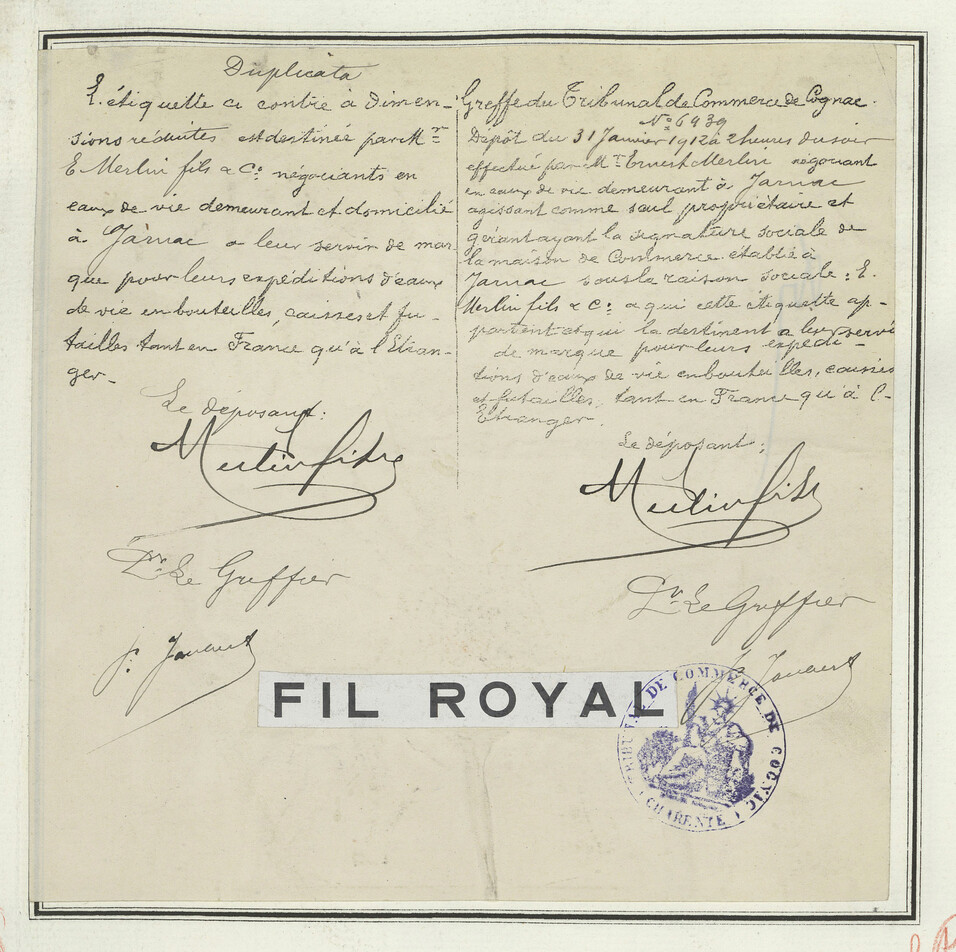 Duplicata
L'étiquette ci contre à dimen-
sions réduites est destinée par Mrs
E Merlin fils & Co négociants en
eaux de vie demeurant et domicilié
à Jarnac a leur servir de mar-
que pour leurs expéditions d'eaux
de vie en bouteilles, caisses et fu-
tailles tant en France qu'à l'Etran-
ger.-
Le déposant:
Merlin fils
Pr Le Greffier
Greffe du Tribunal de Commerce de Cognac.
No 6939
Dépôt du 31 Janvier 1912 à 2 heures du soir
effectué par Mr Ernest Merlin négociant
en eaux de vie demeurant à Jarnac
agissant comme seul propriétaire et
gérant ayant la signature sociale de
la maison de Commerce établie à
Jarnac sous la raison sociale: E.
Merlin fils & Co a qui cette étiquette ap-
partient et qui la destinent a leur servir
de marque pour leurs expédi-
tions d'eaux de vie en bouteilles, caisses
et futailles, tant en France qu'à l'-
Etranger.
Le déposant:
Merlin fils
Pr Le Greffier
FIL ROYAL
TRIBUNAL DE COMMERCE DE COGNAC
(CHARENTE)